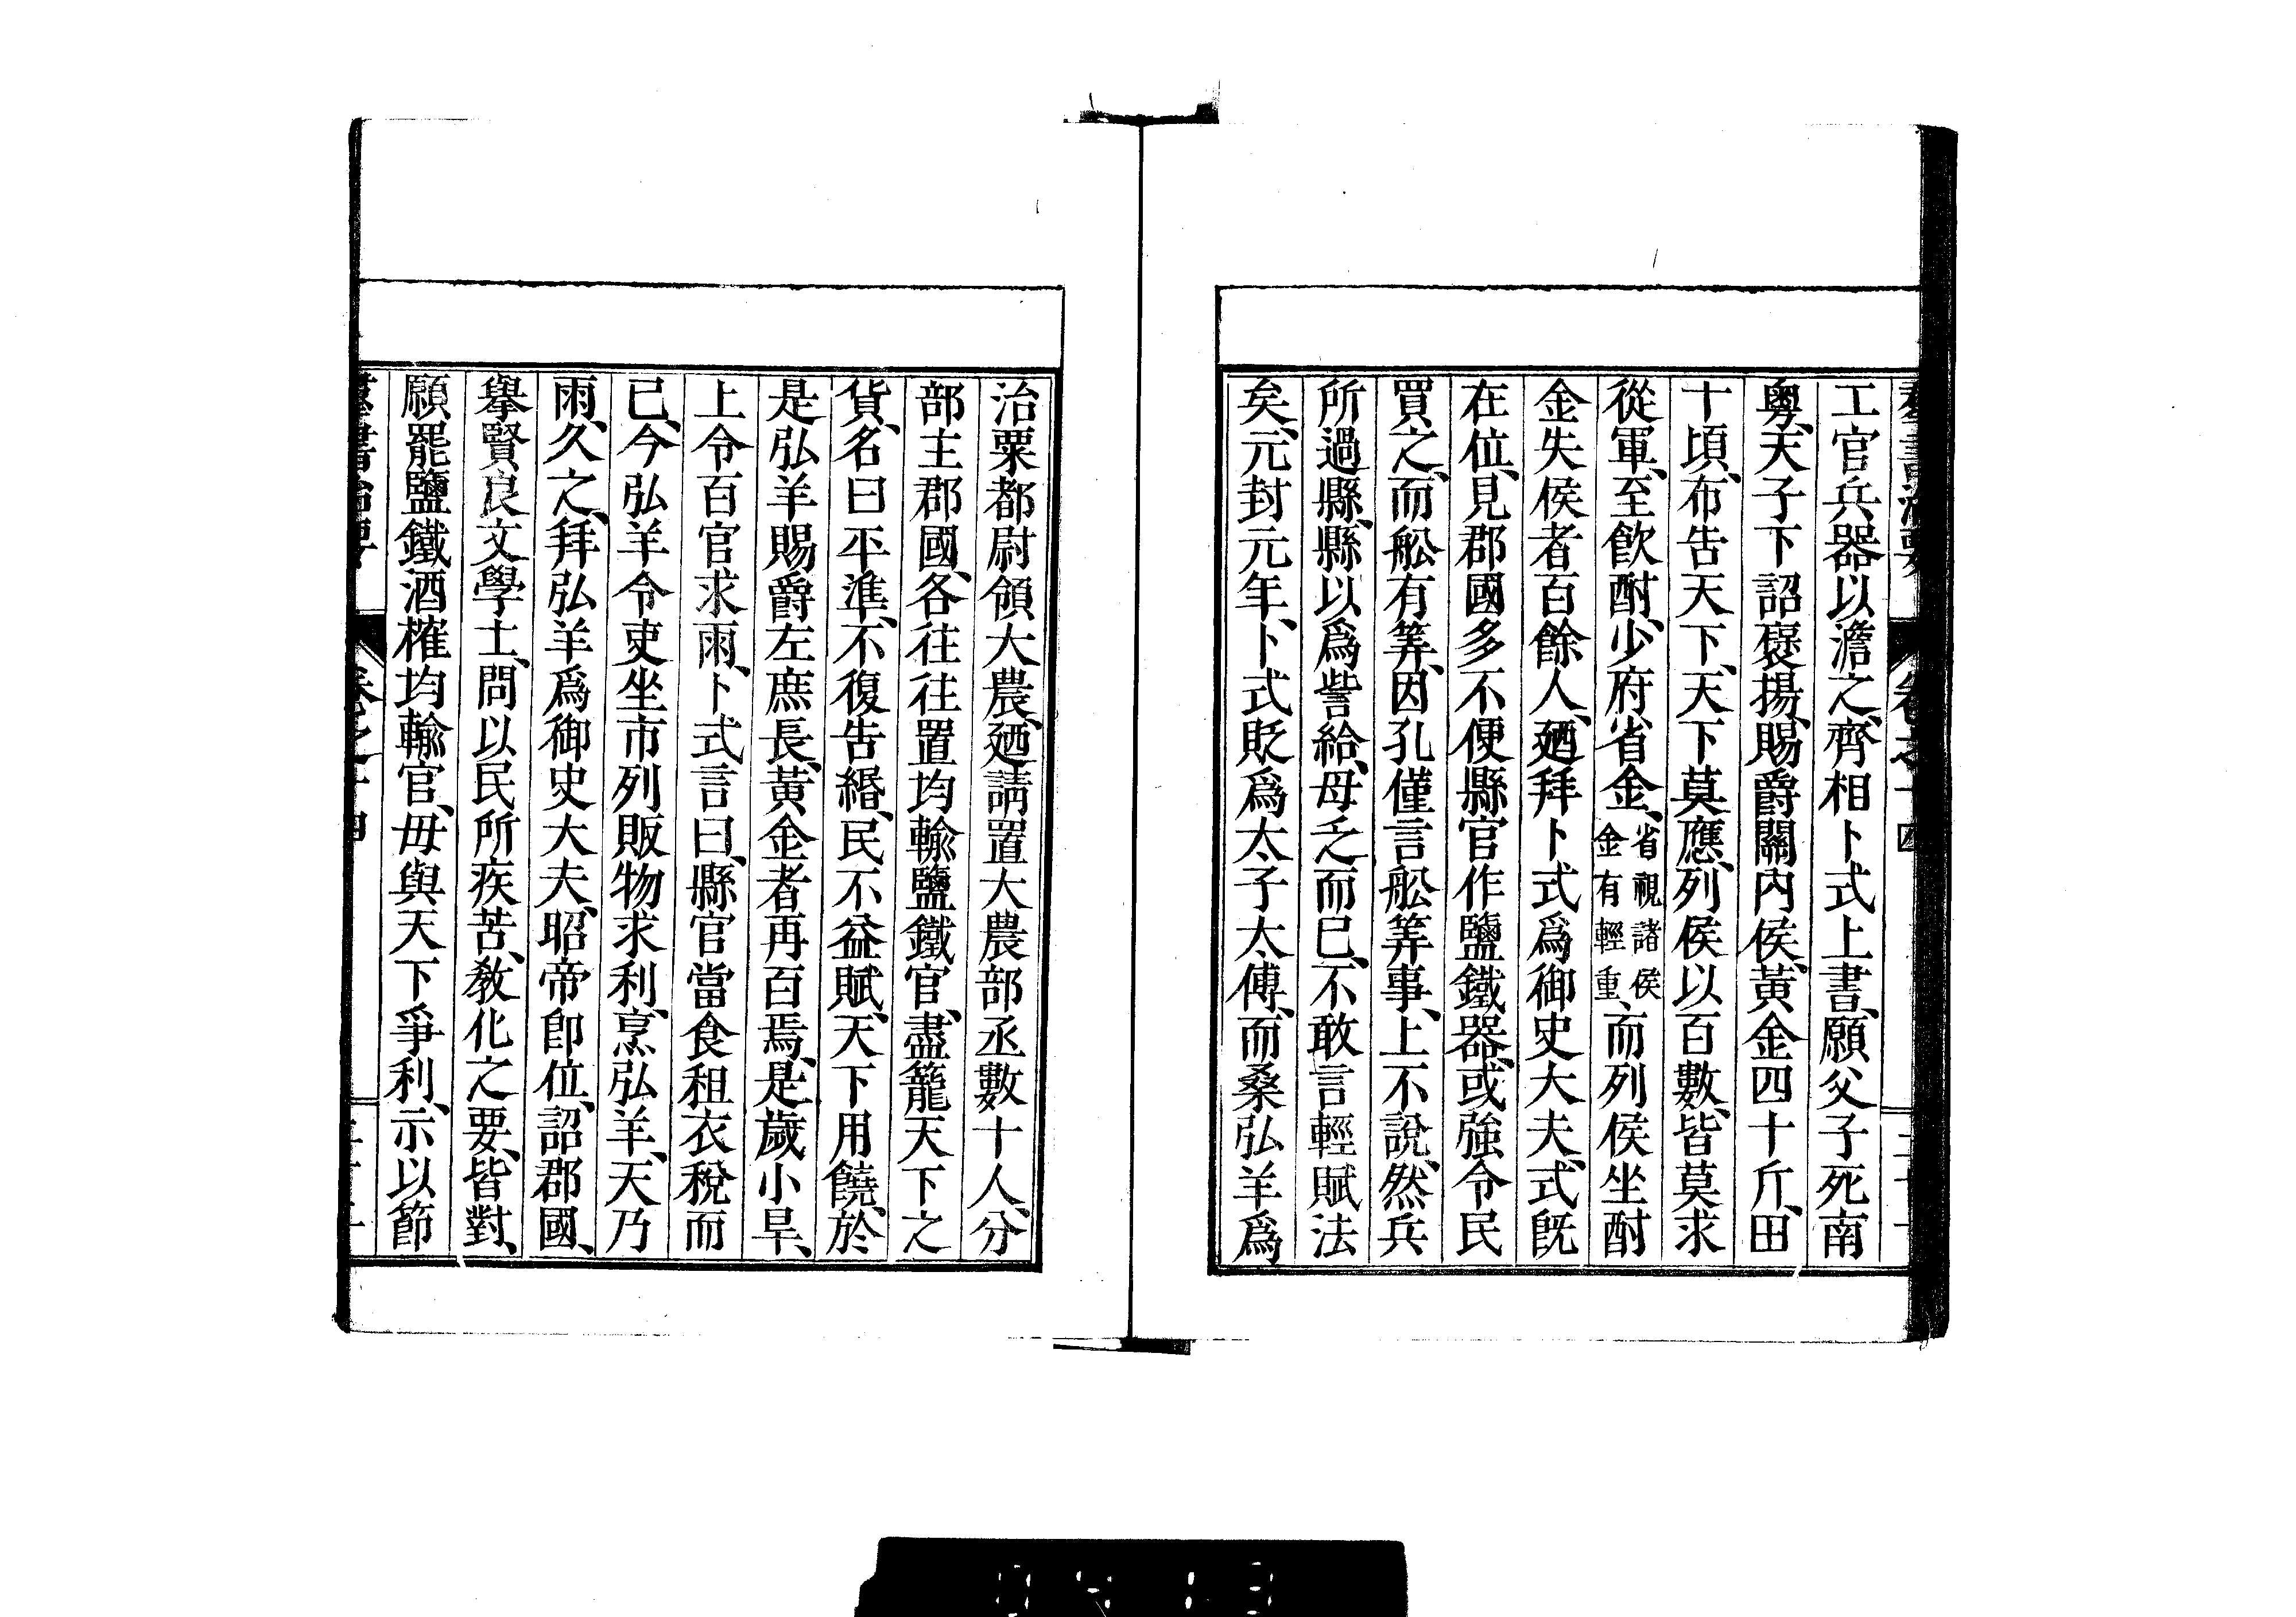 羣書治要 卷之十四
工官兵器以澹之、齊相卜式上書、願父子死南
粵、天子下詔襃揚、賜爵關內侯、黃金四十斤、田
十頃、布告天下、天下莫應、列侯以百數、皆莫求
從軍、至飲酎、少府省金、省視諸侯金有輕重、而列侯坐酎
金失侯者百餘人、廼拜卜式爲御史大夫、式旣
在位、見郡國多不便縣官作鹽鐵器、或強令民
買之、而舩有筭、因孔僅言舩筭事、上不說、然兵
所過縣、縣以爲訾給、毋乏而已、不敢言輕賦法
矣、元封元年、卜式貶爲太子太傅、而桑弘羊爲
治粟都尉領大農、廼請置大農部丞數十人、分
部主郡國、各往往置均輸鹽鐵官、盡籠天下之
貨、名曰平準、不復告緡、民不益賦、天下用饒、於
是弘羊賜爵左庶長、黃金者再百焉、是歲小旱、
上令百官求雨、卜式言曰、縣官當食租衣稅而
已、今弘羊令吏坐市列販物求利、烹弘羊、天乃
雨、久之、拜弘羊爲御史大夫、昭帝卽位、詔郡國、
擧賢良文學士、問以民所疾苦、敎化之要、皆對、
願罷鹽鐵酒榷均輸官、毋與天下爭利、示以節
羣書治要 卷之十四